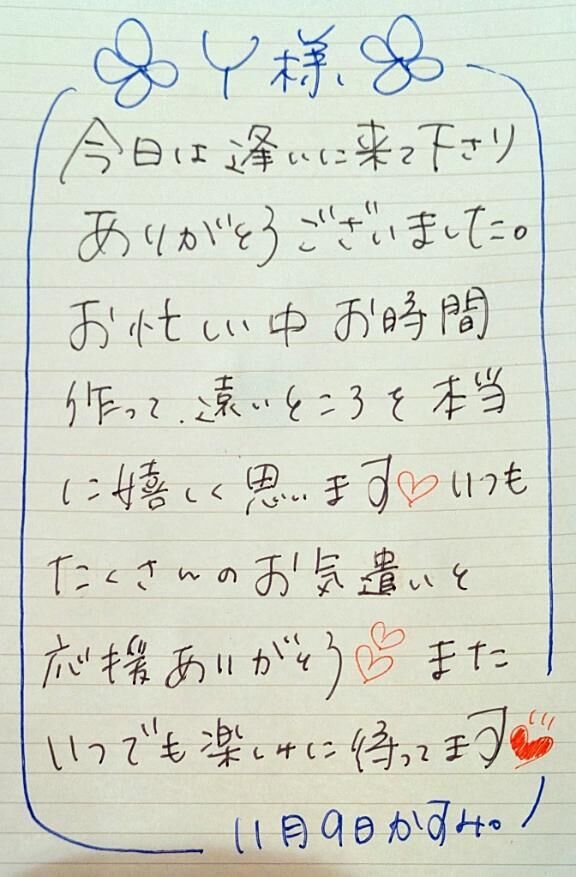 Y様、
今日は逢いに来て下さり
ありがとうございました。
お忙しい中お時間
作って、遠いところを本当
に嬉しく思います♡いつも
たくさんのお気遣いと
応援ありがとう♡♡また
いつでも楽しみに待ってます♥
11月9日かすみ。